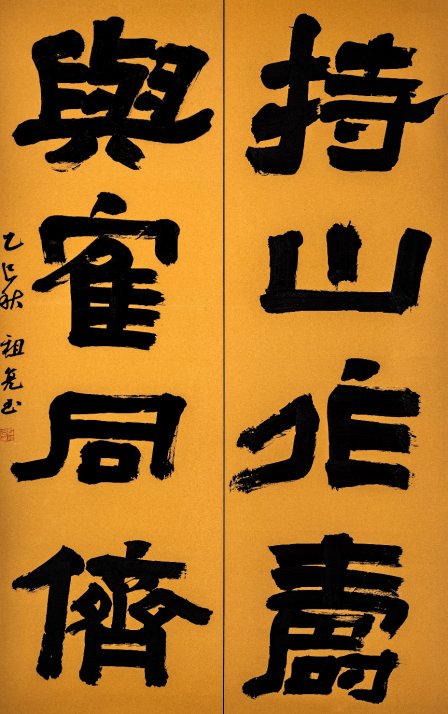 持山作壽
與寉同儕
乙巳秋 祖亮书